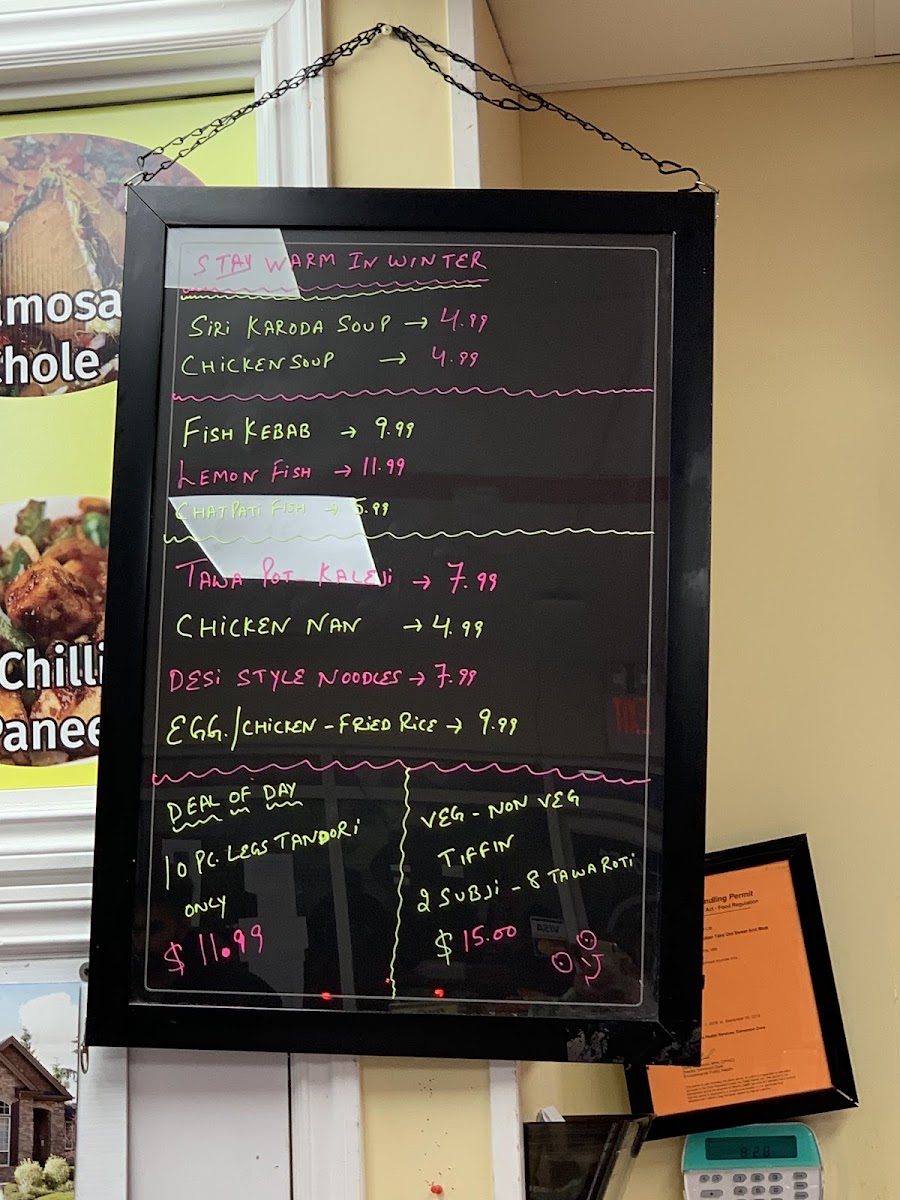 STAY WARM IN WINTER
SIRI KARODA SOUP → 4.99
CHICKEN SOUP → 4.99
FISH KEBAB → 9.99
LEMON FISH → 11.99
CHATPATI FISH → 5.99
TAWA POT- KALEJI → 7.99
CHICKEN NAN → 4.99
DESI STYLE NOODLES → 7.99
EGG./CHICKEN - FRIED RICE → 9.99
DEAL OF DAY
10 PC. LEGS TANDORI
ONLY
$ 11.99
VEG - NON VEG
TIFFIN
2 SUBJI - 8 TAWA ROTI
$ 15.00
amosa
hole
Chilli
Panee
ndling Permit
Act - Food Regulation
8:28